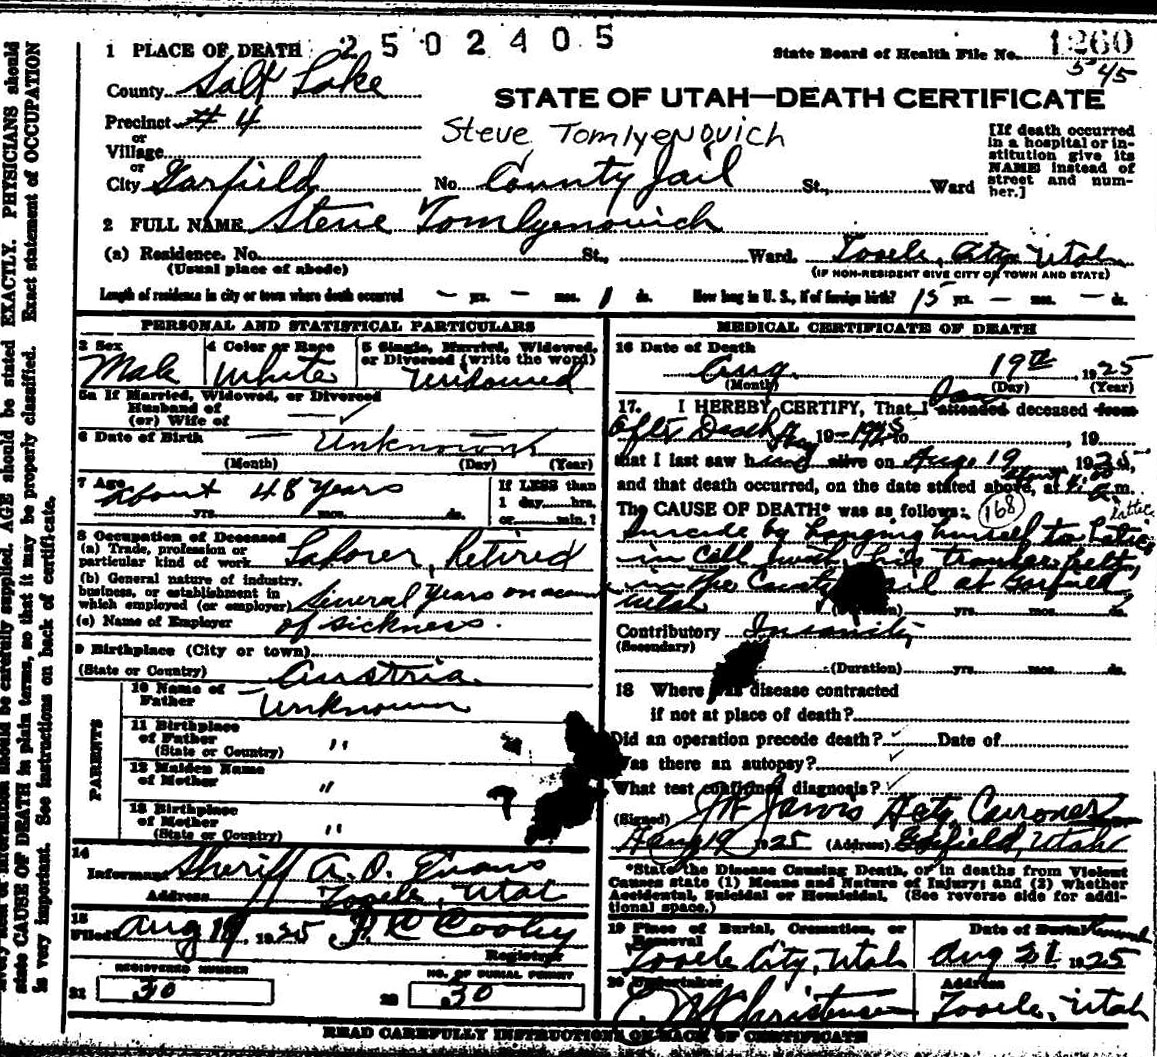 1 PLACE OF DEATH 2502405
State Board of Health File No. 1260
545
County Salt Lake
STATE OF UTAH—DEATH CERTIFICATE
Precinct # 4
Steve Tomlyenovich
or
Village
or
City Garfield No. County Jail St., Ward
[If death occurred
in a hospital or in-
stitution give its
NAME instead of
street and num-
ber.]
2 FULL NAME Steve Tomlyenovich
(a) Residence. No. St., Ward. Tooele, City Utah
(Usual place of abode) (IF NON-RESIDENT GIVE CITY OR TOWN AND STATE)
Length of residence in city or town where death occurred — yrs. — mos. 1 ds. How long in U. S., if of foreign birth? 15 yrs. — mos. — ds.
PERSONAL AND STATISTICAL PARTICULARS
3 Sex
Male
4 Color or Race
White
5 Single, Married, Widowed,
or Divorced (write the word)
Widowed
5a If Married, Widowed, or Divorced
Husband of
(or) Wife of
6 Date of Birth
— Unknown
(Month) (Day) (Year)
7 Age
About 48 years
yrs. mos. ds.
If LESS than
1 day, hrs.
or min.?
8 Occupation of Deceased
(a) Trade, profession or
particular kind of work Laborer, Retired
(b) General nature of industry,
business, or establishment in
which employed (or employer) Several years on account
(c) Name of Employer of sickness.
9 Birthplace (City or town)
(State or Country) Austria
PARENTS
10 Name of
Father Unknown
11 Birthplace
of Father "
(State or Country)
12 Maiden Name
of Mother "
13 Birthplace
of Mother "
(State or Country)
14
Informant Sheriff A. O. Evans
Address Tooele, Utah
15
Filed Aug 19 1925 P. C. Cooley
Registrar
REGISTERED NUMBER
21 30
NO. OF BURIAL PERMIT
22 30
MEDICAL CERTIFICATE OF DEATH
16 Date of Death
Aug. 19th 1925
(Month) (Day) (Year)
17. I HEREBY CERTIFY, That I attended deceased from
After Death 19 to , 19
that I last saw h alive on Aug. 19 1925,
and that death occurred, on the date stated above, at m.
The CAUSE OF DEATH* was as follows: 168
lattice
Suicide by hanging himself to
in cell with his trouser belt,
in the County Jail at Garfield
Utah
(Duration) yrs. mos. ds.
Contributory Insanity
(Secondary)
(Duration) yrs. mos. ds.
18 Where was disease contracted
if not at place of death?
Did an operation precede death? Date of
Was there an autopsy?
What test confirmed diagnosis?
(Signed) J W Jarvis Actg. Corroner
Aug 19 1925 (Address) Garfield, Utah
*State the Disease Causing Death, or in deaths from Violent
Causes state (1) Means and Nature of Injury; and (2) whether
Accidental, Suicidal or Homicidal. (See reverse side for addi-
tional space.)
19 Place of Burial, Cremation, or
Removal
Tooele City, Utah
Date of Burial Removal
Aug 21 1925
20 Undertaker
Christensen
Address
Tooele, Utah
READ CAREFULLY INSTRUCTIONS ON BACK OF CERTIFICATE
should be carefully supplied. AGE should be stated EXACTLY. PHYSICIANS should
state CAUSE OF DEATH in plain terms, so that it may be properly classified. Exact statement of OCCUPATION
is very important. See instructions on back of certificate.